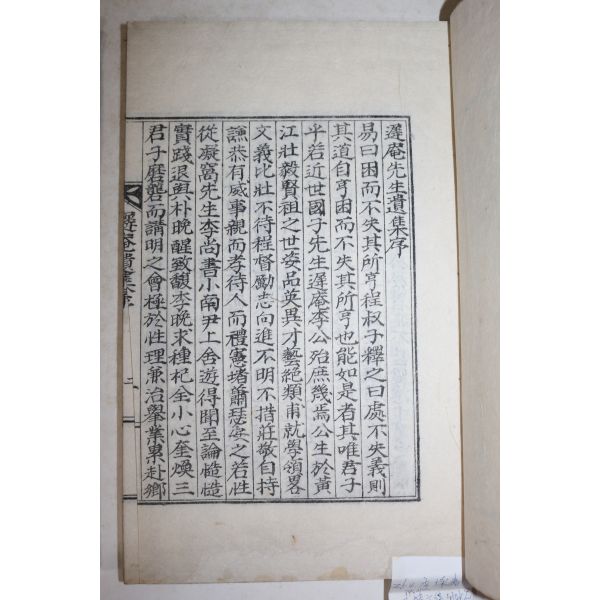 遲庵先生遺集序
易曰困而不失其所亨程叔子釋之曰處不失義則
其道自亨困而不失其所亨也能如是者其唯君子
乎若近世國子先生遲庵李公殆庶幾焉公生於黃
江壯毅賢祖之世姿品英異才藝絶類甫就學領畧
文義比壯不待程督勵志向進不明不措莊敬自持
謙恭有威事親而孝待人而禮憲堵蕭瑟安之若性
從凝窩先生李尚書小南尹上舍遊得聞至論慥慥
實踐退與朴晩醒致馥李晩求種杞金小心奎煥三
君子磨礱而講明之會極於性理兼治擧業累赴鄕
遲庵遺集序